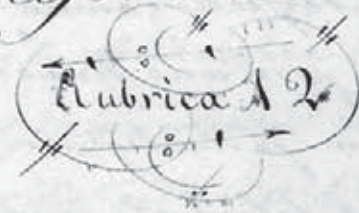 Rubrica 12